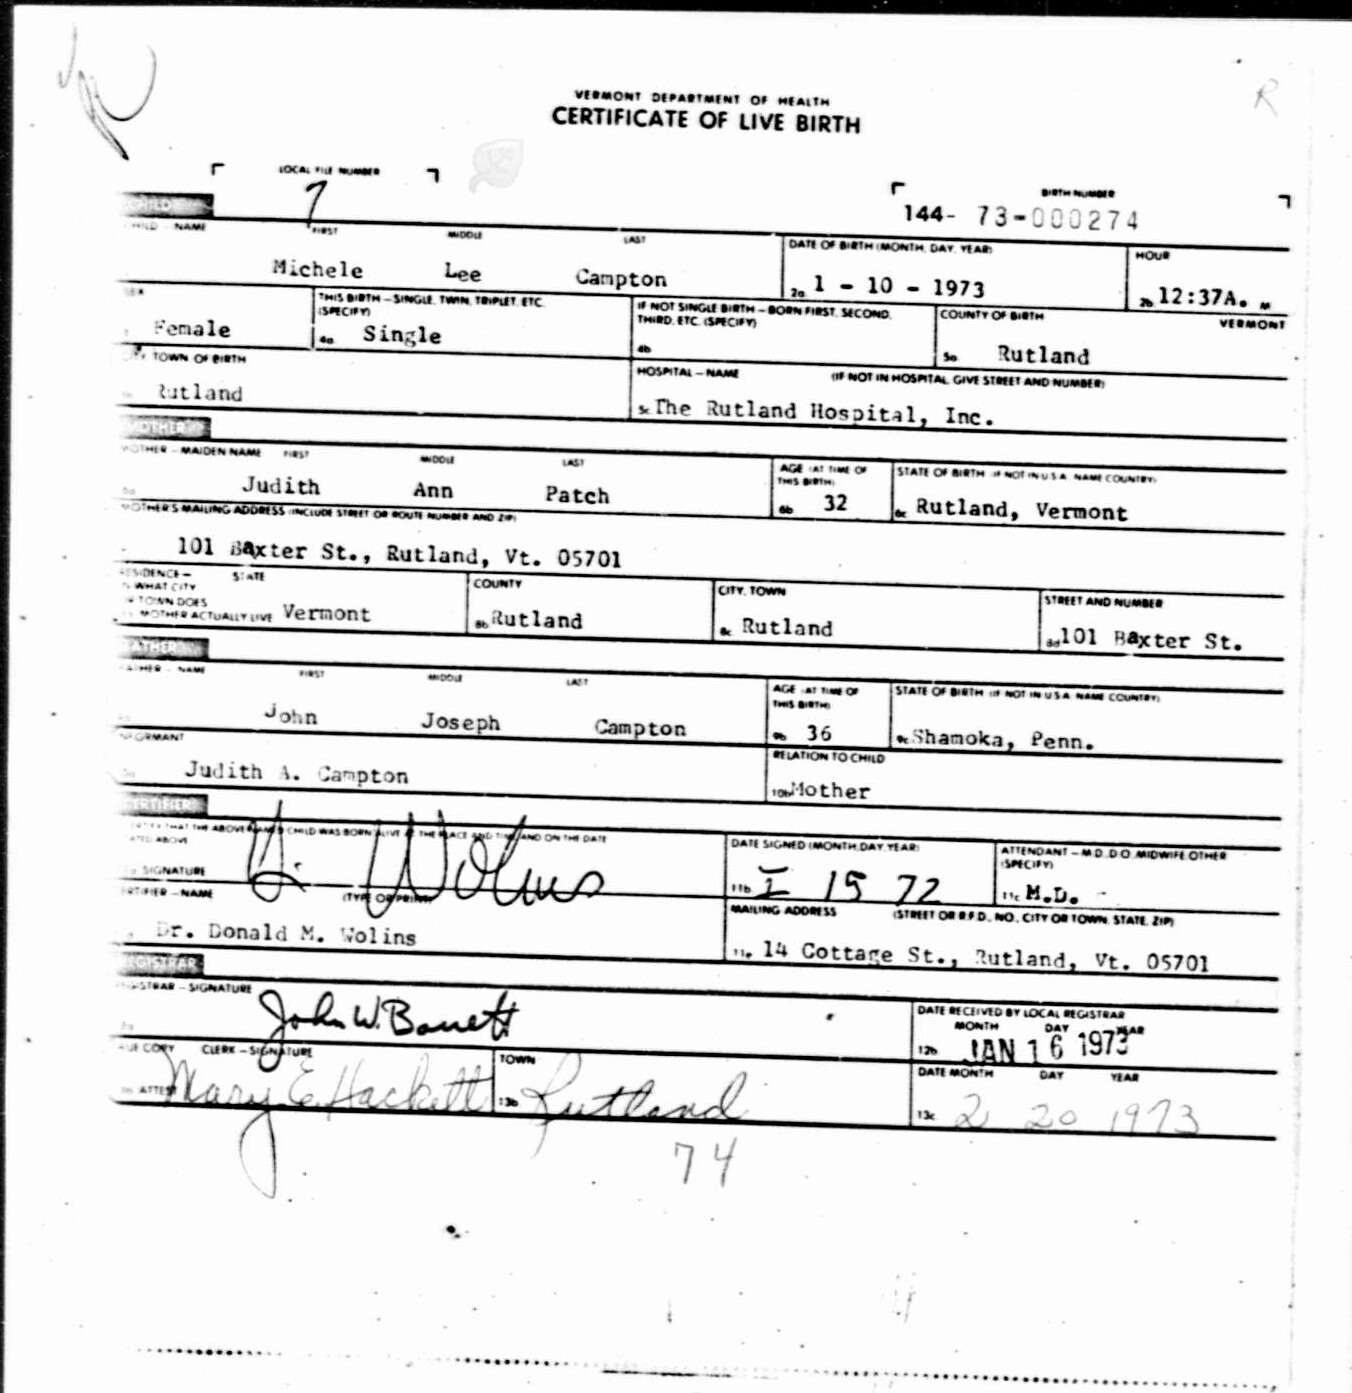 R
VERMONT DEPARTMENT OF HEALTH
CERTIFICATE OF LIVE BIRTH
LOCAL FILE NUMBER
7
BIRTH NUMBER
144- 73-000274
CHILD
CHILD - NAME FIRST MIDDLE LAST
Michele Lee Campton
DATE OF BIRTH (MONTH, DAY, YEAR)
2a 1 - 10 - 1973
HOUR
2b 12:37A. M
SEX
Female
THIS BIRTH - SINGLE, TWIN, TRIPLET, ETC.
(SPECIFY)
4a Single
IF NOT SINGLE BIRTH - BORN FIRST, SECOND,
THIRD, ETC. (SPECIFY)
4b
COUNTY OF BIRTH
VERMONT
5a Rutland
TOWN OF BIRTH
Rutland
HOSPITAL - NAME (IF NOT IN HOSPITAL, GIVE STREET AND NUMBER)
5c The Rutland Hospital, Inc.
MOTHER
MOTHER - MAIDEN NAME FIRST MIDDLE LAST
Judith Ann Patch
AGE (AT TIME OF
THIS BIRTH)
6b 32
STATE OF BIRTH (IF NOT IN U.S.A. NAME COUNTRY)
6c Rutland, Vermont
MOTHER'S MAILING ADDRESS (INCLUDE STREET OR ROUTE NUMBER AND ZIP)
101 Baxter St., Rutland, Vt. 05701
RESIDENCE - STATE
IN WHAT CITY
OR TOWN DOES
MOTHER ACTUALLY LIVE Vermont
COUNTY
8b Rutland
CITY, TOWN
8c Rutland
STREET AND NUMBER
8d 101 Baxter St.
FATHER
FATHER - NAME FIRST MIDDLE LAST
John Joseph Campton
AGE (AT TIME OF
THIS BIRTH)
9b 36
STATE OF BIRTH (IF NOT IN U.S.A. NAME COUNTRY)
9c Shamoka, Penn.
INFORMANT
Judith A. Campton
RELATION TO CHILD
10b Mother
CERTIFIER
CERTIFY THAT THE ABOVE NAMED CHILD WAS BORN ALIVE AT THE PLACE AND TIME AND ON THE DATE
STATED ABOVE
SIGNATURE Wolins
DATE SIGNED (MONTH, DAY, YEAR)
11b I 15 72
ATTENDANT - M.D., D.O., MIDWIFE, OTHER
(SPECIFY)
11c M.D.
CERTIFIER - NAME (TYPE OR PRINT)
Dr. Donald M. Wolins
MAILING ADDRESS (STREET OR R.F.D. NO., CITY OR TOWN, STATE, ZIP)
11e 14 Cottage St., Rutland, Vt. 05701
REGISTRAR
REGISTRAR - SIGNATURE
John W. Barrett
DATE RECEIVED BY LOCAL REGISTRAR
MONTH DAY YEAR
12b JAN 16 1973
TRUE COPY CLERK - SIGNATURE
ATTEST Mary E Hackett
TOWN
13b Rutland
DATE MONTH DAY YEAR
13c 2 20 1973
74